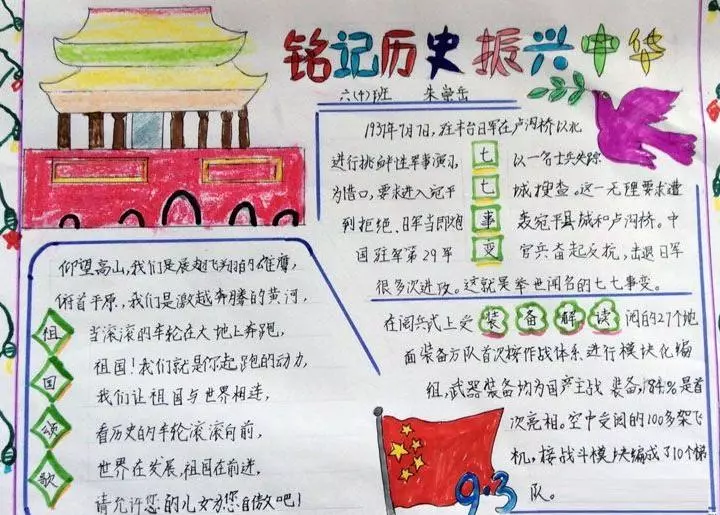 铭记历史 振兴中华
六(十)班 朱莹岳
1937年7月7日，驻丰台日军在卢沟桥以北
进行挑衅性军事演习 七 以一名士兵失踪
为借口，要求进入宛平 七 城搜查。这一无理要求遭
到拒绝，日军当即炮 事 轰宛平县城和卢沟桥。中
国驻军第29军 变 官兵奋起反抗，击退日军
很多次进攻。这就是举世闻名的七七事变。
仰望高山，我们是展翅飞翔的雄鹰，
俯首平原，我们是激越奔腾的黄河，
祖 当滚滚的车轮在大地上奔跑，
祖国！我们就是你起跑的动力，
国 我们让祖国与世界相连，
颂 看历史的车轮滚滚向前，
歌 世界在发展，祖国在前进，
请允许您的儿女为您自傲吧！
在阅兵式上受 装备解读 阅的27个地
面装备方队首次按作战体系进行模块化编
组，武器装备均为国产主战装备，84%是首
次亮相。空中受阅的100多架飞
机，按战斗模块编成了10个梯
队。
9.3